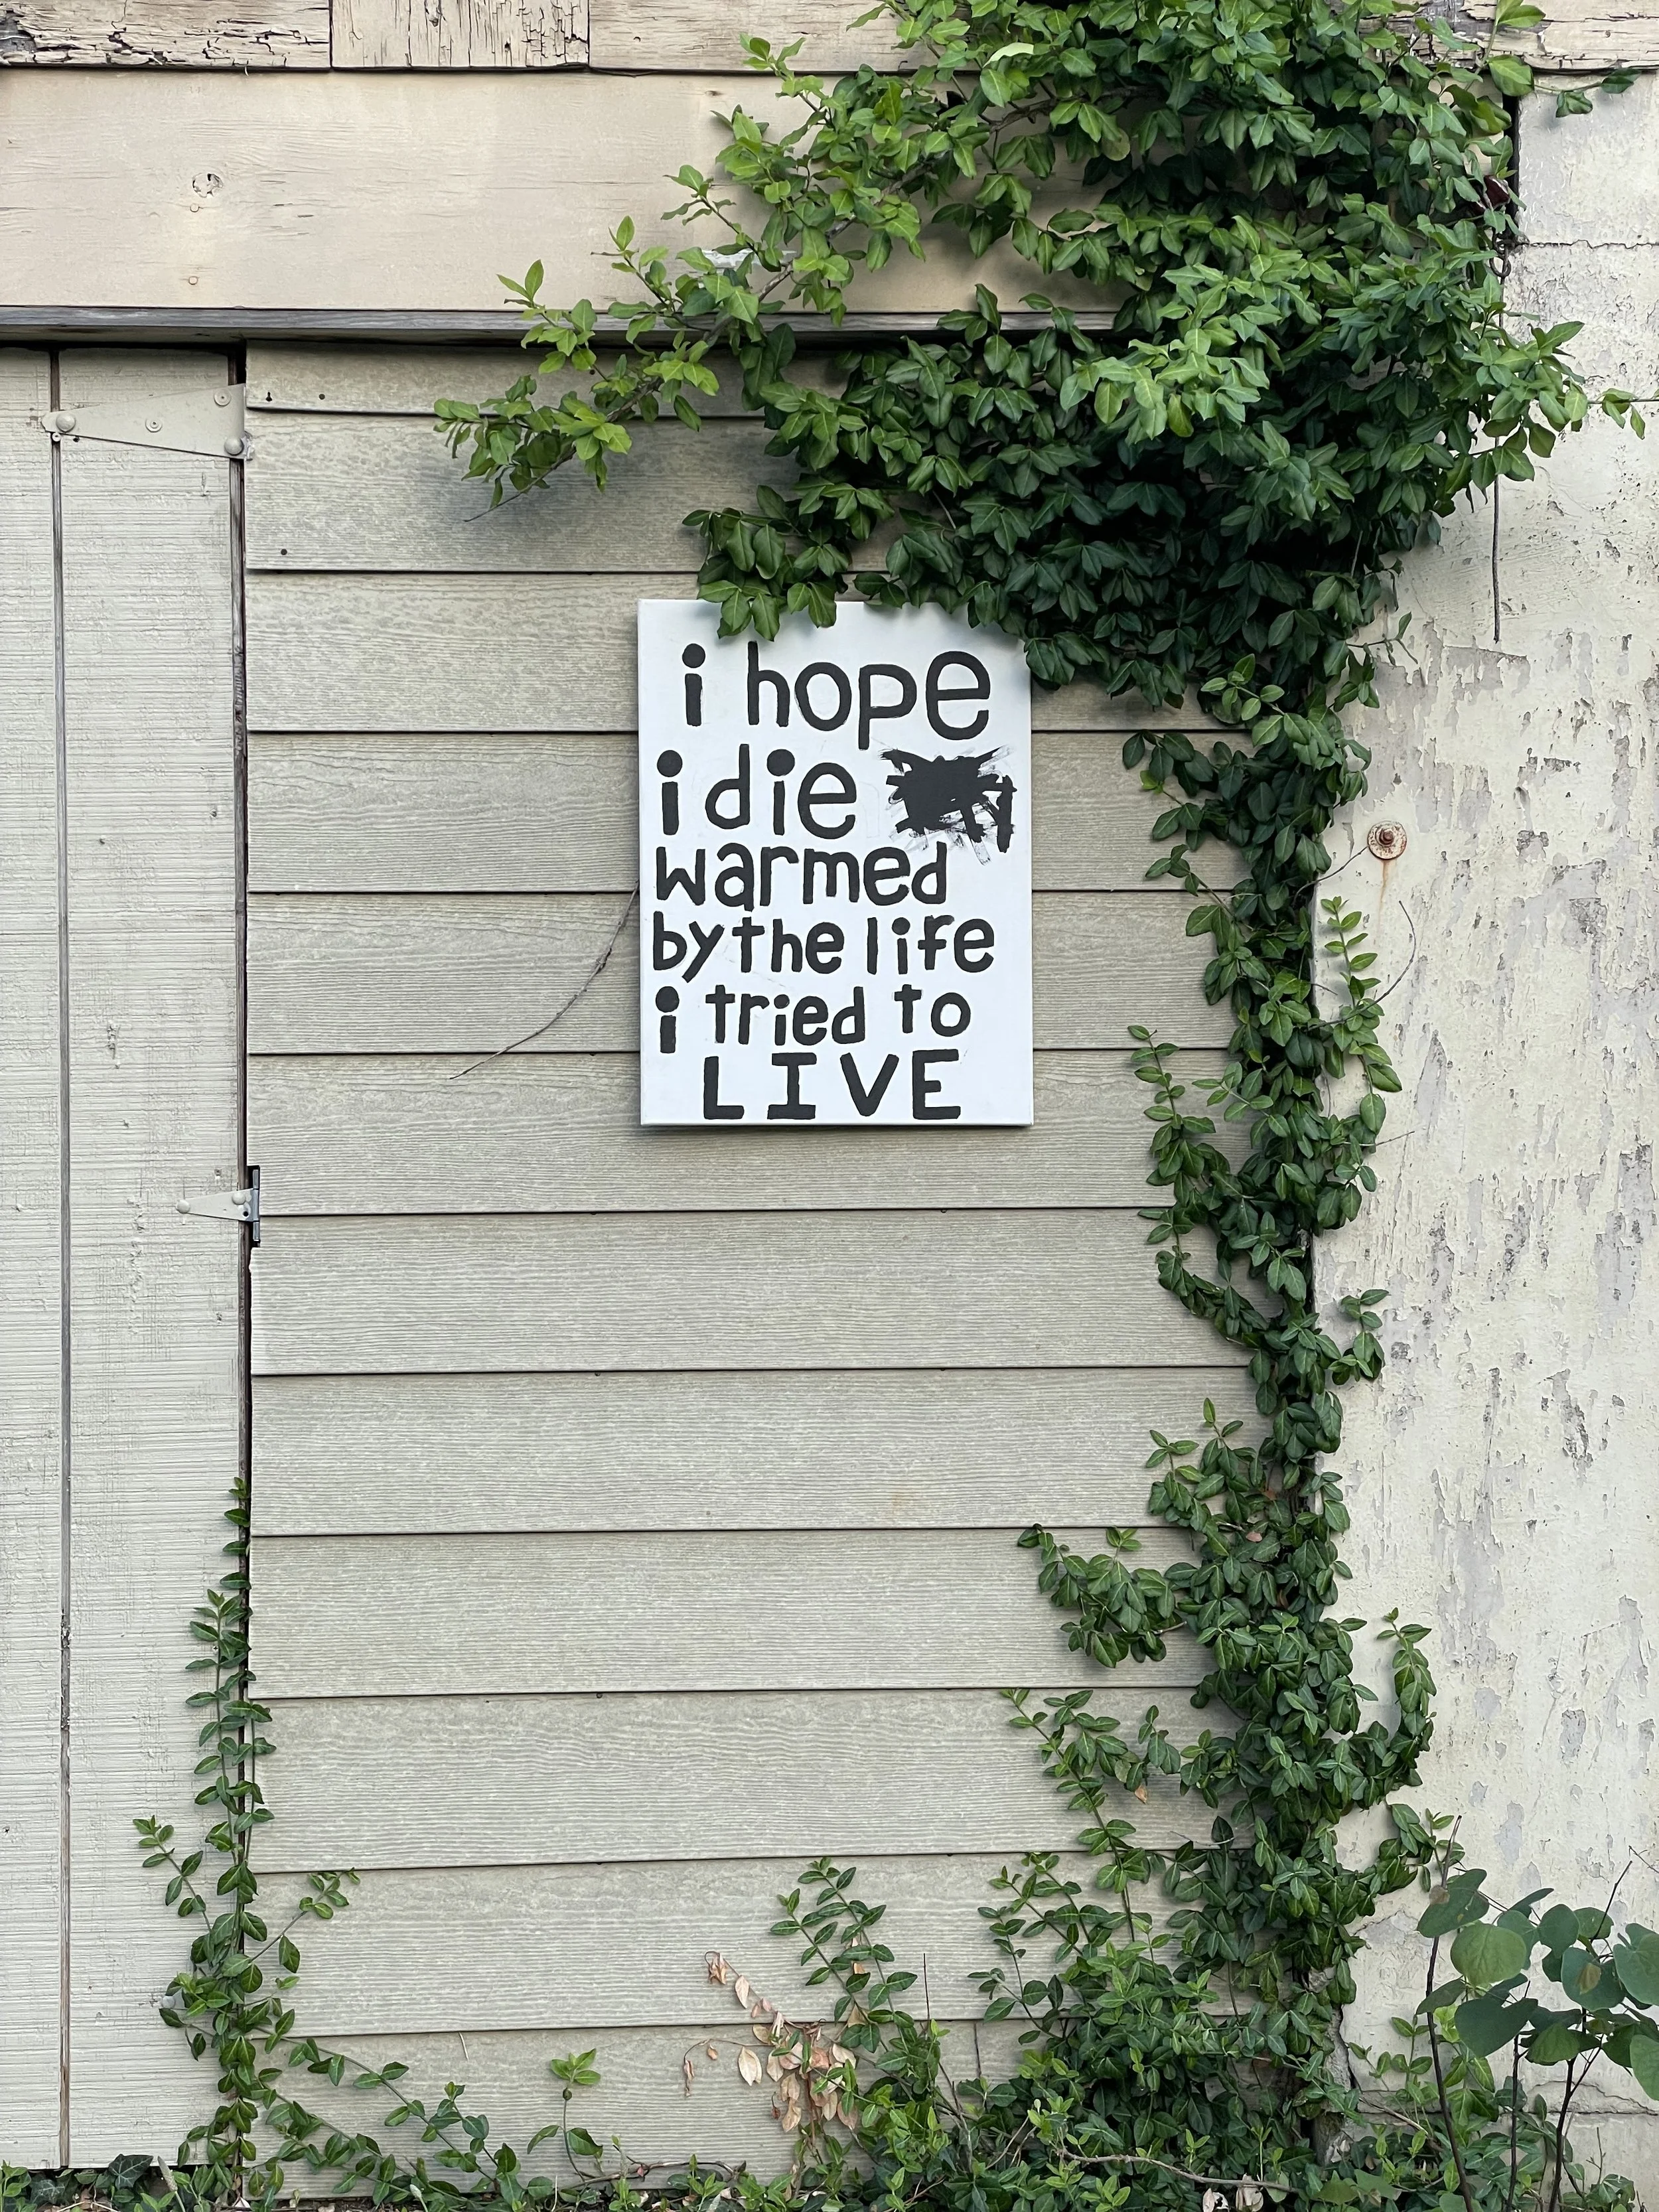 i hope
i die
warmed
by the life
i tried to
LIVE